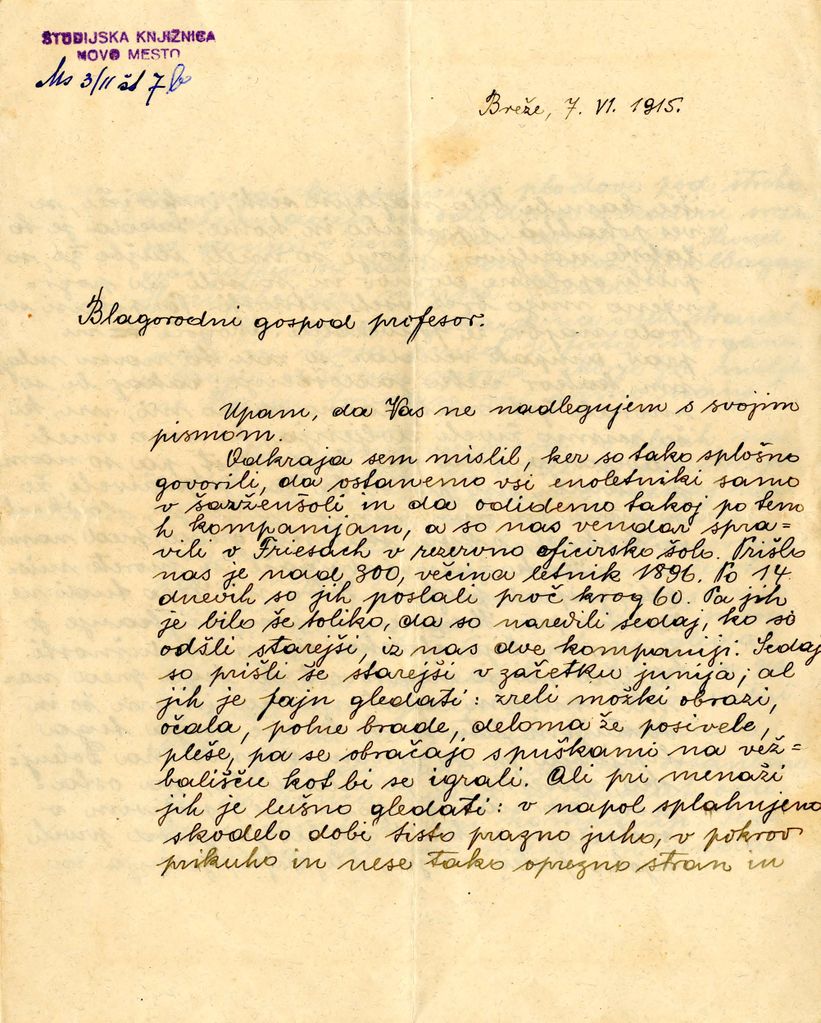 ŠTUDIJSKA KNJIŽNICA
NOVO MESTO
Ms 3/II št 7 b
Breže, 7. VI. 1915.
Blagorodni gospod profesor.
Upam, da Vas ne nadlegujem s svojim
pismom.
Odkraja sem mislil, ker so tako splošno
govorili, da ostanemo vsi enoletniki samo
v šarženšoli in da odidemo takoj potem
h kompanijam, a so nas vendar spra=
vili v Friesach v rezervno oficirsko šolo. Prišlo
nas je nad 300, večina letnik 1896. Po 14
dnevih so jih poslali proč krog 60. Pa jih
je bilo še toliko, da so naredili sedaj, ko so
odšli starejši, iz nas dve kompaniji. Sedaj
so prišli še starejši v začetku junija; al
jih je fajn gledati: zreli možki obrazi,
očala, polne brade, deloma že posivele,
pleše, pa se obračajo s puškami na vež=
bališču kot bi se igrali. Ali pri menaži
jih je lušno gledati: v napol splahnjeno
skodelo dobi tisto prazno juho, v pokrov
prikuho in nese tako oprezno stran in